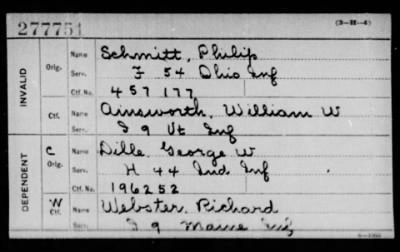 277751
(3-H-4)
INVALID
Orig. Name Schmitt, Philip
Serv. F 54 Ohio Inf
Ctf. No. 457177
Ctf. Name Ainsworth, William W
Serv. I 9 Vt Inf
DEPENDENT
C Orig. Name Dille George W
Serv. H 44 Ind Inf
Ctf. No. 196252
W Ctf. Name Webster, Richard
Serv. I 9 Maine Inf